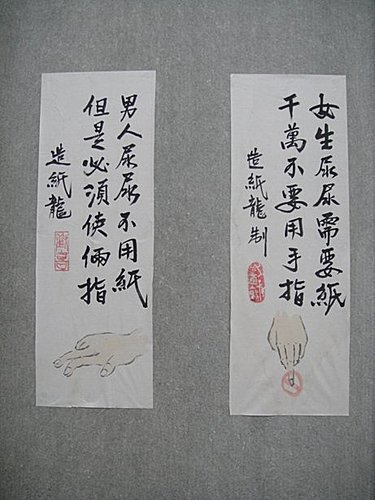 女生尿尿需要紙
千萬不要用手指
造紙龍制
男人尿尿不用紙
但是必須使倆指
造紙龍